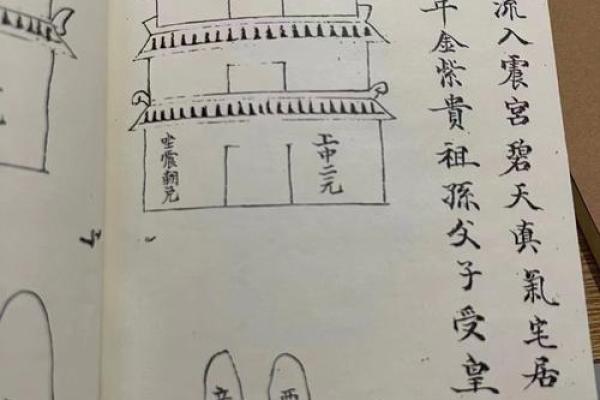 流入震宮碧天真氣宅居
年金紫貴祖孫父子受皇
上中二元
坐震朝兑
辛
酉